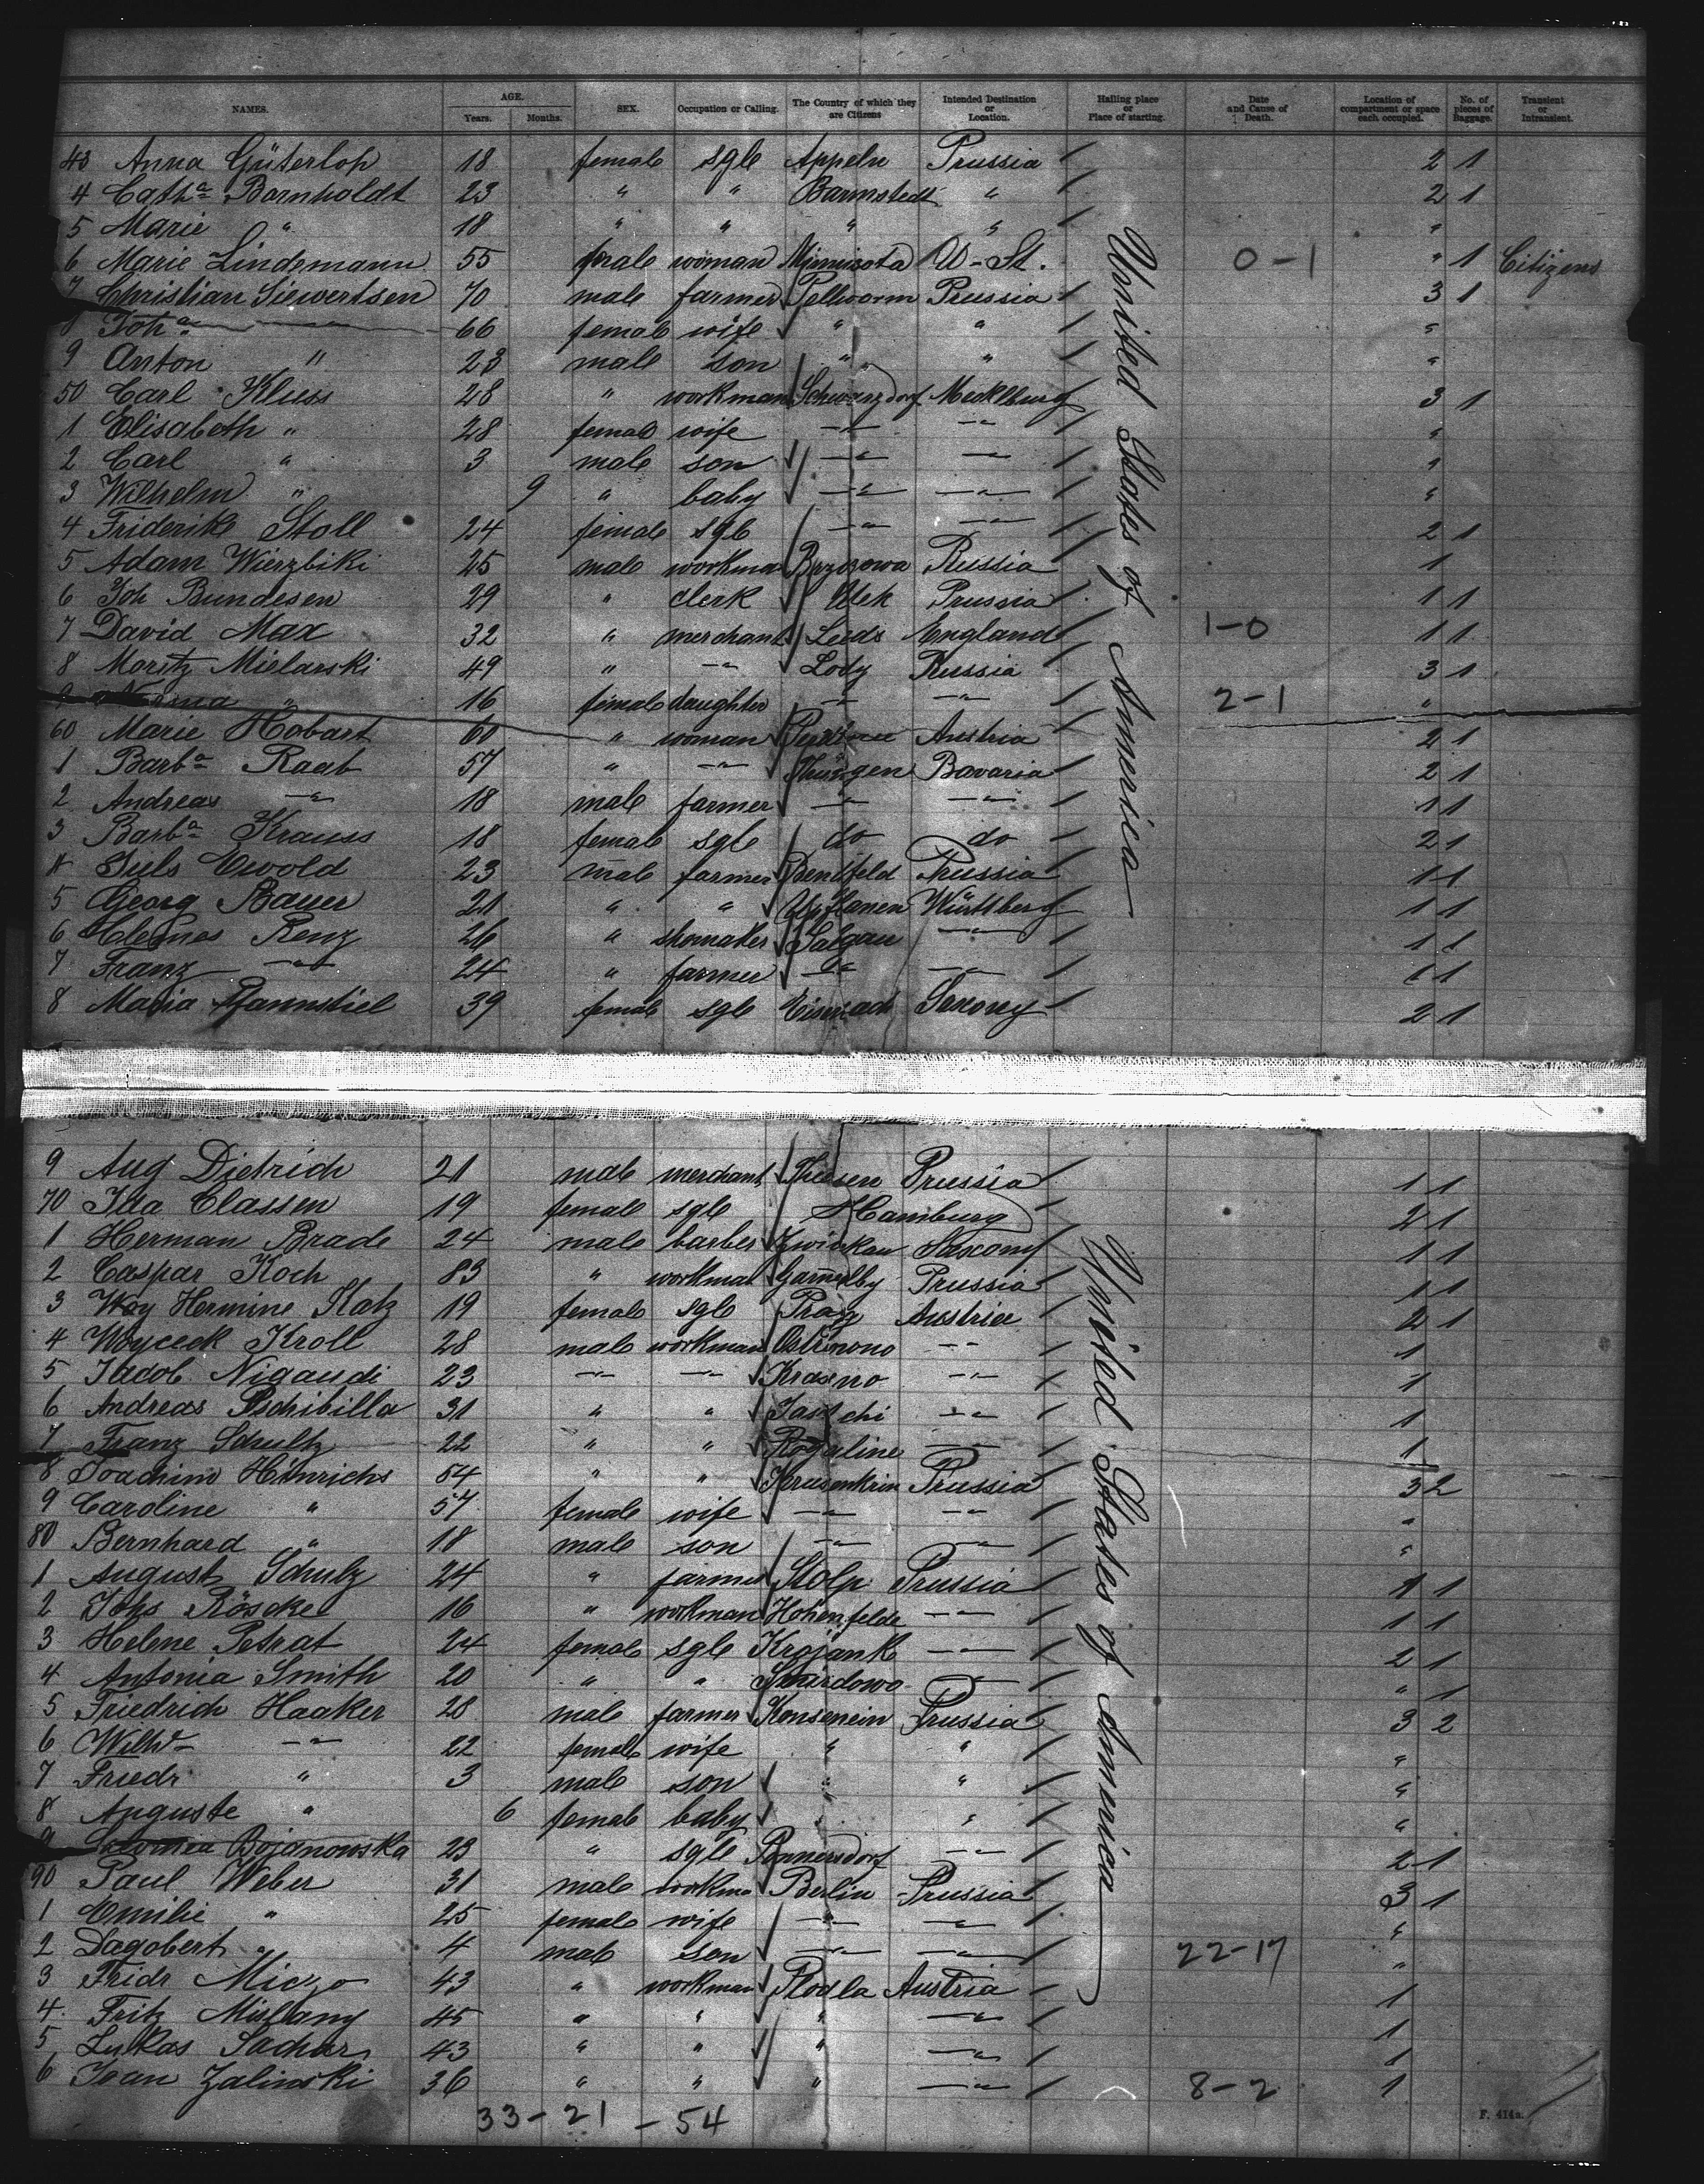 NAMES. AGE. Years. Months. SEX. Occupation or Calling. The Country of which they are Citizens Intended Destination or Location. Hailing place or Place of starting. Date and Cause of Death. Location of compartment or space each occupied. No. of pieces of Baggage. Transient or Intransient.
43 Anna Güterloh 18 female sgle Appeln Prussia 2 1
4 Cath.a Bornholdt 23 " " Barmstedt " 2 1
5 Marie " 18 " " " " "
6 Marie Lindemann 55 female woman Minnisota U-St. 0-1 " 1 Citizens
7 Christian Siewertsen 70 male farmer Pellworm Prussia 3 1
8 Joh.a 66 female wife " " "
9 Anton " 23 male son " " "
50 Carl Kluss 28 " workman Schwarzdorf Mecklburg 3 1
1 Elisabeth " 28 female wife " " "
2 Carl " 3 male son " " "
3 Wilhelm " 9 " baby " " "
4 Friderike Stoll 24 female sgle " " 2 1
5 Adam Wierzbiki 25 male workman Brzozowa Russia 1
6 Joh Bundesen 29 " clerk Uek Prussia 1 1
7 David Max 32 " merchant Leeds England 1-0 1 1
8 Moritz Mielarski 49 " " Lody Russia 3 1
9 16 female daughter " " 2-1 "
60 Marie Hobart 60 " woman Austria 2 1
1 Barb.a Raab 57 " " Thüngen Bavaria 2 1
2 Andreas " 18 male farmer " " 1 1
3 Barb.a Krauss 18 female sgle do do 2 1
4 Juls Ewold 23 male farmer Bentfeld Prussia 1 1
5 Georg Bauer 21 " " Upflanen Württberg 1 1
6 Clemes Renz 26 " shomaker Salgau " 1 1
7 Franz " 24 " farmer " " 1 1
8 Maria Pfannstiel 39 female sgle Eisenach Saxony 2 1
9 Aug Dietrich 21 male merchant Prussia 1 1
70 Ida Classen 19 female sgle Hamburg 2 1
1 Herman Brade 24 male barber Zwickau Saxony 1 1
2 Caspar Koch 83 " workman Prussia 1 1
3 Hermine Katz 19 female sgle Prag Austria 2 1
4 Woyceck Kroll 28 male workman Ostrowono " 1
5 Jacob Nigaudi 23 " " Krasno " 1
6 Andreas Pschibilla 31 " " " 1
7 Franz Schultz 22 " " Rogaline " 1
8 Joachim Hinrichs 54 " " Krusenkrin Prussia 3 2
9 Caroline " 57 female wife " " "
80 Bernhard " 18 male son " " "
1 August Schulz 24 " farmer Stolp Prussia 1 1
2 Johs Röscke 16 " workman Hohenfelde " 1 1
3 Helene Petrat 24 female sgle Krojank " 2 1
4 Antonia Smith 20 " " Smirdowo " " 1
5 Friedrich Haaker 28 male farmer Konsenein Prussia 3 2
6 Wilh. " 22 female wife " " "
7 Friedr " 3 male son " " "
8 Auguste " 6 female baby " " "
9 Bojanowska 23 " sgle Pommersdorf " 2 1
90 Paul Weber 31 male workman Berlin Prussia 3 1
1 Emilie " 25 female wife " " "
2 Dagobert " 4 male son " " 22-17 "
3 Fridr Miczo 43 " workman Plodla Austria 1
4 Fritz Mislany 45 " " " " 1
5 Lukas Sachar 43 " " " " 1
6 Ivan Zalinski 36 " " " " 8-2 1
33-21-54
United States of America
United States of America
F. 414a.